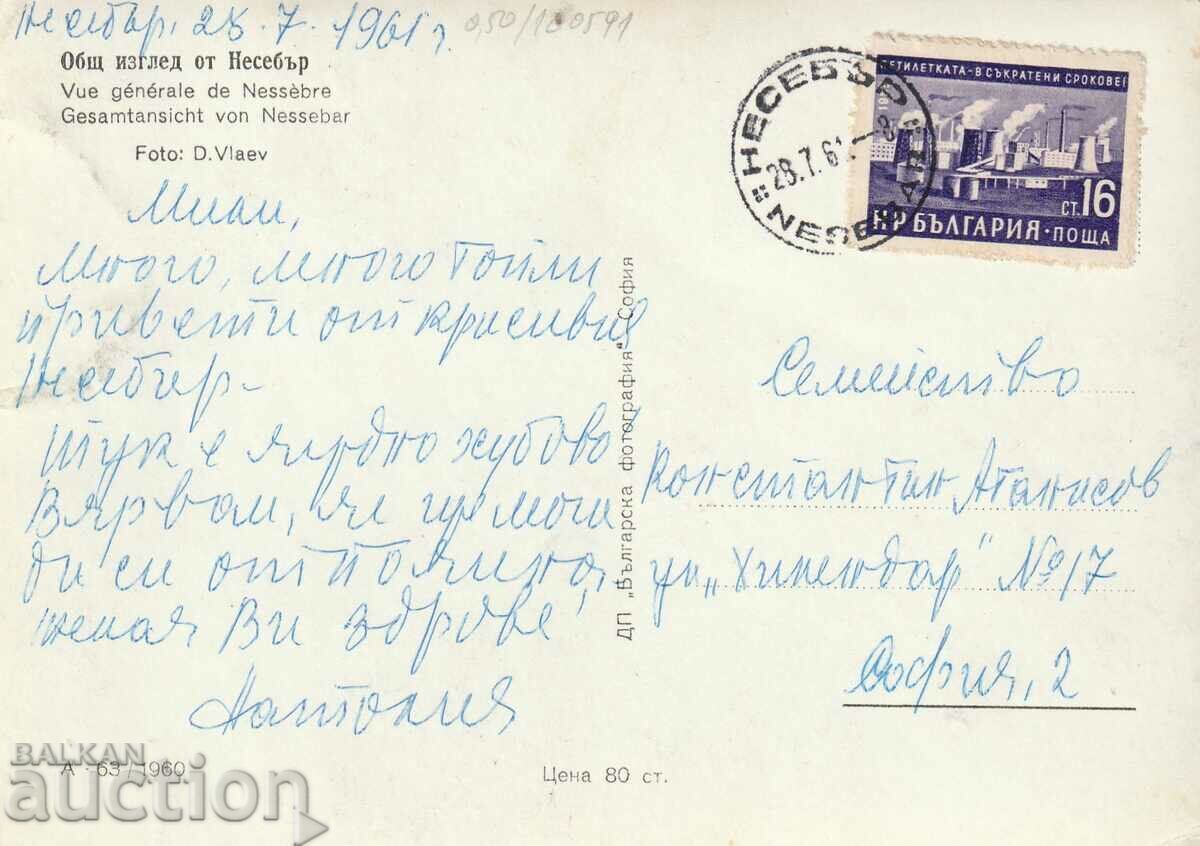 Несебър, 25.7.1961 г.
0,50/100591
Общ изглед от Несебър
Vue générale de Nessèbre
Gesamtansicht von Nessebar
Foto: D.Vlaev
НЕСЕБЪР
28.7.61.-8
NESEBAR
ПЕТИЛЕТКАТА-В СЪКРАТЕНИ СРОКОВЕ!
СТ. 16
НР БЪЛГАРИЯ·ПОЩА
Мили,
Много, много топли
привети от красивия
Несебър-
Тук е чудно хубаво
Вярвам,
да си
желая Ви здраве!
Антония
ДП „Българска фотография" София
Семейство
Константин Атанасов
ул „Хилендар" № 17
София, 2
А - 63/1960
Цена 80 ст.
BALKAN
auction